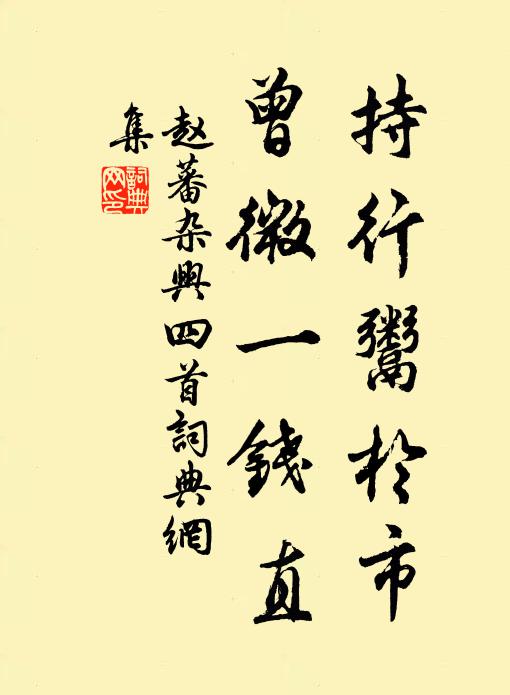 持行鬻於市
曾微一錢直
赵蕃杂興四首詞典網
集
詞典网印